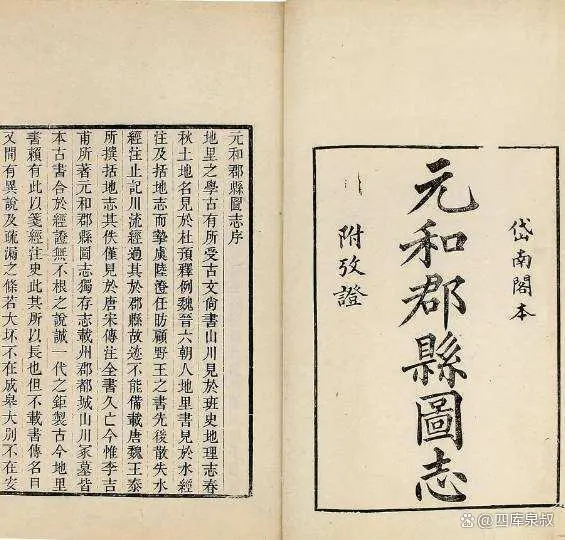 岱南閣本
元和郡縣圖志
附攷證
元和郡縣圖志序
地里之學古有所受古文尙書山川見於班史地理志春
秋土地名見於杜預釋例魏晉六朝人地里書見於水經
注及括地志而摯虞陸澄任昉顧野王之書先後散失水
經注止記川流經過其於郡縣故迹不能備載唐魏王泰
所撰括地志其佚僅見於唐宋傳注全書久亡今惟李吉
甫所著元和郡縣圖志獨存志載州郡都城山川冢墓皆
本古書合於經證無不根之說誠一代之鉅製古今地里
書賴有此以箋經注史此其所以長也但不載書傳名目
又間有異說及疏漏之條若大坯不在成皋大別不在安
@四库泉叔